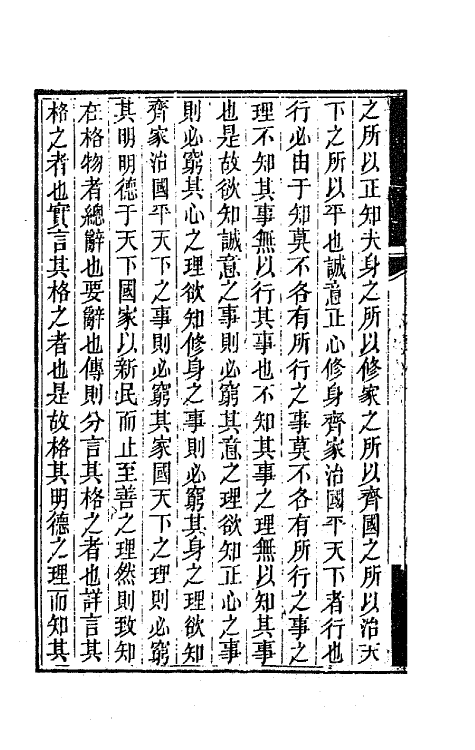 之所以正知夫身之所以修家之所以齊國之所以治天
下之所以平也誠意正心修身齊家治國平天下者行也
行必由于知莫不各有所行之事莫不各有所行之事之
理不知其事無以行其事也不知其事之理無以知其事
也是故欲知誠意之事則必窮其意之理欲知正心之事
則必窮其心之理欲知修身之事則必窮其身之理欲知
齊家治國平天下之事則必窮其家國天下之理則必窮
其明明德于天下國家以新民而止至善之理然則致知
在格物者總辭也要辭也傳則分言其格之者也詳言其
格之者也實言其格之者也是故格其明德之理而知其